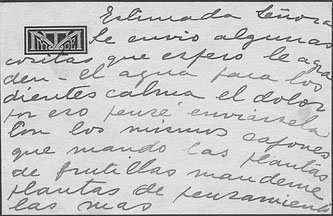 Estimada Señora
Le envio algunas
cositas que espero le agra
den - El agua para los
dientes calma el dolor
por eso pensé enviársela
Con los mismos cajones
que mando las plantas
de frutillas mandeme
plantas de pensamiento
las mas